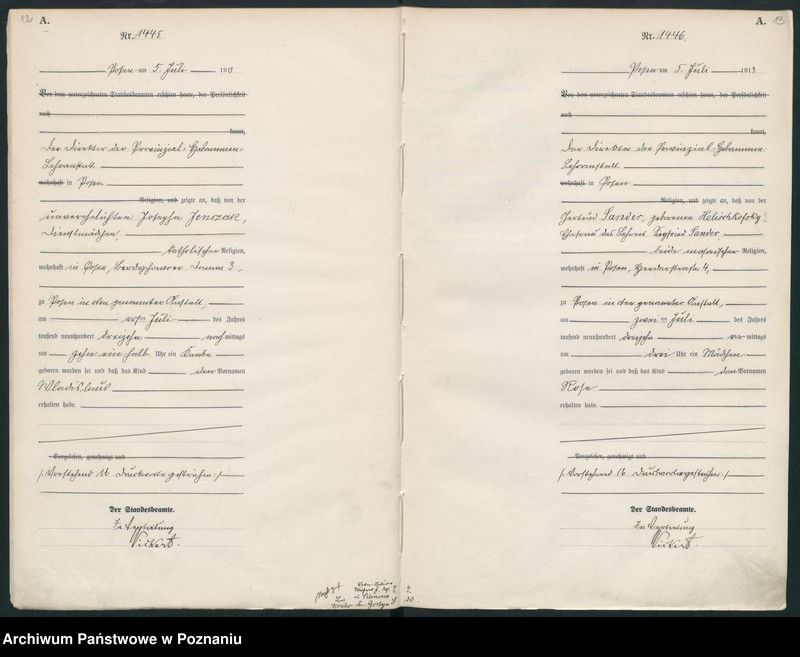 12
A.
Nr. 1445
Posen am 5. Juli 1913
Vor dem unterzeichneten Standesbeamten erschien heute, der Persönlichkeit
nach
kannt,
der Direktor der Provinzial-Hebammen-
Lehranstalt
wohnhaft in Posen
Religion, und zeigte an, daß von der
unverehelichten Josepha
Dienstmädchen,
katholischer Religion,
wohnhaft in Posen, Damm 3,
zu Posen in der genannten Anstalt,
am Juli des Jahres
tausend neunhundert dreizehn nachmittags
um zehn ein halb Uhr ein Knabe
geboren worden sei und daß das Kind den Vornamen
Wladislaus
erhalten habe.
Vorgelesen, genehmigt und
/: Vorstehend 16 Druckworte gestrichen :/
Der Standesbeamte.
In Vertretung
13
A.
Nr. 1446
Posen am 5. Juli 1913
Vor dem unterzeichneten Standesbeamten erschien heute, der Persönlichkeit
nach
kannt,
Der Direktor der Provinzial-Hebammen-
Lehranstalt
wohnhaft in Posen
Religion, und zeigte an, daß von der
Sander, geborenen
Ehefrau des Lehrers Siegfried Sander,
beide mosaischer Religion,
wohnhaft in Posen, Herderstrasse 4,
zu Posen in der genannten Anstalt,
am zweiten Juli des Jahres
tausend neunhundert dreizehn vormittags
um drei Uhr ein Mädchen
geboren worden sei und daß das Kind den Vornamen
Rosa
erhalten habe.
Vorgelesen, genehmigt und
/: Vorstehend 16 Druckworte gestrichen :/
Der Standesbeamte.
In Vertretung
Archiwum Państwowe w Poznaniu